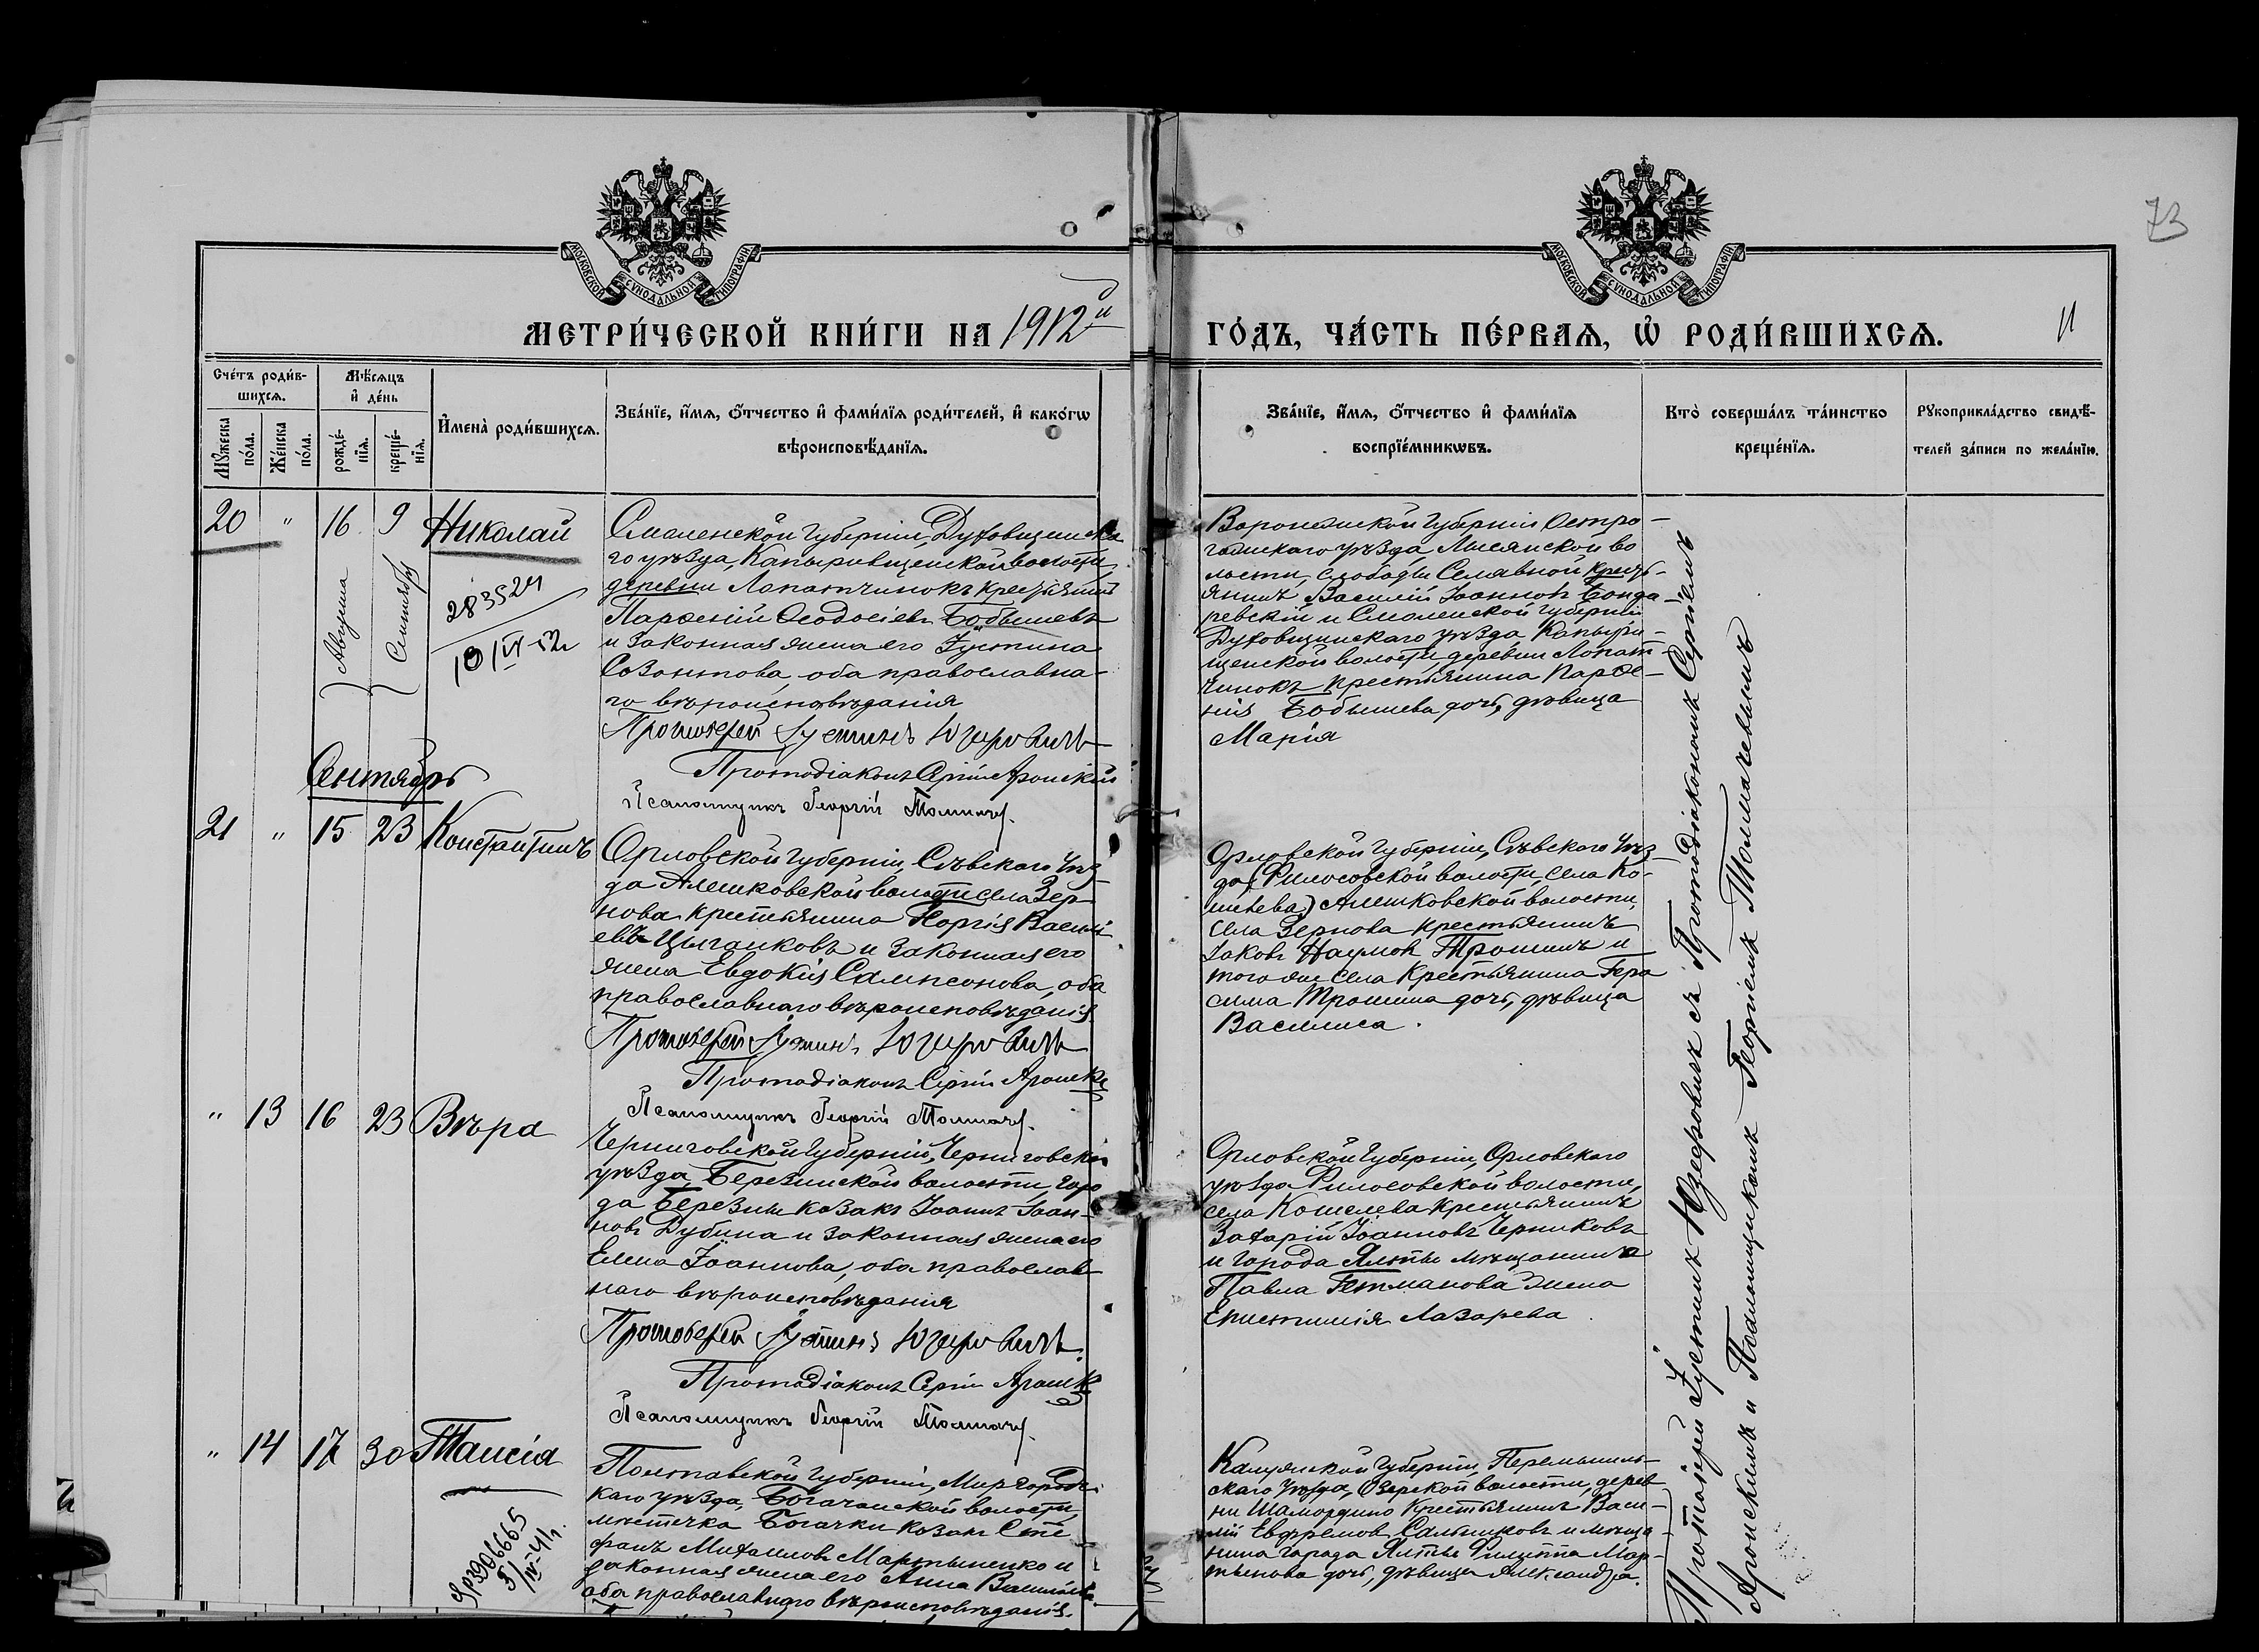 73
МОСКОВСКОЙ СѴНОДАЛЬНОЙ ТИПОГРАФІИ
МОСКОВСКОЙ СѴНОДАЛЬНОЙ ТИПОГРАФІИ
МЕТРИ́ЧЕСКОЙ КНИ́ГИ НА 1912й
ГО́ДЪ, ЧА́СТЬ ПЕ́РВАѦ, Ѡ҆ РОДИ́ВШИХСѦ.
11
Сче́тъ роди́в-
шихсѧ.
Мѣ́сѧцъ
и҆ де́нь
Мꙋ́жеска
по́ла.
Же́нска
по́ла.
рожде́-
нїѧ.
креще́-
нїѧ.
И҆мена̀ роди́вшихсѧ.
Зва́нїе, и҆́мѧ, ѻ҆́тчество и҆ фами́лїѧ роди́телей, и҆ како́гѡ
вѣроисповѣ́данїѧ.
Зва́нїе, и҆́мѧ, ѻ҆́тчество и҆ фами́лїѧ
воспрїе́мникѡвъ.
Кто̀ соверша́лъ та́инство
креще́нїѧ.
Рꙋкоприкла́дство свидѣ́-
телей за́писи по жела́нїю.
20 " 16 9 Николай
Августа
Сентября
283524
Смоленской губерніи, Духовщинска
го уѣзда, Капыревщенской волости,
деревни Лопатчинокъ крестьянинъ
Парѳеній Ѳеодосіевъ Бобышевъ
и законная жена его Іустина
Созонтова, оба православна-
го вѣроисповѣданія
Протоіерей Іустинъ Юзефовичъ
Протодіаконъ Сергій Аронскій
Псаломщикъ Георгій Толмач.
Воронежской губерніи Остро-
гожскаго уѣзда, Лисянской во
лости, слободы Селявной кресть-
янинъ Василій Іоанновъ Бонда-
ревскій и Смоленской губерніи
Духовщинскаго уѣзда Капыри-
щенской волости, деревни Лопат-
чинокъ крестьянина Парѳе-
нія Бобышева дочь, дѣвица
Марія
Сентябрь
21 " 15 23 Константинъ
Орловской губерніи, Сѣвскаго уѣз-
да Алешковской волости села Зер-
нова крестьянина Георгія Василі
евъ Цыганковъ и законная его
жена Евдокія Сампсонова, оба
православнаго вѣроисповѣданія
Протоіерей Іустинъ Юзефовичъ
Протодіаконъ Сергій Аронск
Псаломщикъ Георгій Толмач.
Орловской губерніи, Сѣвскаго уѣз-
да (Рилосовской волости, села Ко-
шелева) Алешковской волости,
села Зернова крестьянинъ
Іаковъ Наумовъ Трошинъ и
того же села крестьянина Гера
сима Трошина дочь, дѣвица
Василиса.
" 13 16 23 Вѣра
Черниговской губерніи, Черниговскаго
уѣзда, Березинской волости, горо
да Березны козакъ Іоаннъ Іоан-
новъ Дубина и законная жена его
Елена Іоаннова, оба православ
наго вѣроисповѣданія
Протоіерей Іустинъ Юзефовичъ.
Протодіаконъ Сергій Аронск
Псаломщикъ Георгій Толмач.
Орловской губерніи, Орловскаго
уѣзда Рилосовской волости,
села Кошелева крестьянинъ
Захарій Іоанновъ Черниковъ
и города Ялты мѣщанина
Павла Гетманова жена
Епистимія Лазарева.
" 14 17 30 Таисія
Полтавской губерніи, Миргородс
каго уѣзда, Богачанской волости,
мѣстечка Богачки козакъ Сте
фанъ Михаиловъ Мартыненко и
законная жена его Анна Васильева
оба православнаго вѣроисповѣданія.
Калужской губерніи, Перемышль-
скаго уѣзда, Озерской волости, дерев
ни Шамордино крестьянинъ Васи-
лій Евфремовъ Сальниковъ и мѣща-
нина города Ялты Филиппа Мар-
тынова дочь, дѣвица Александра.
Протоіерей Іустинъ Юзефовичъ съ Протодіакономъ Сергіемъ
Аронскимъ и Псаломщикомъ Георгіемъ Толмачевымъ